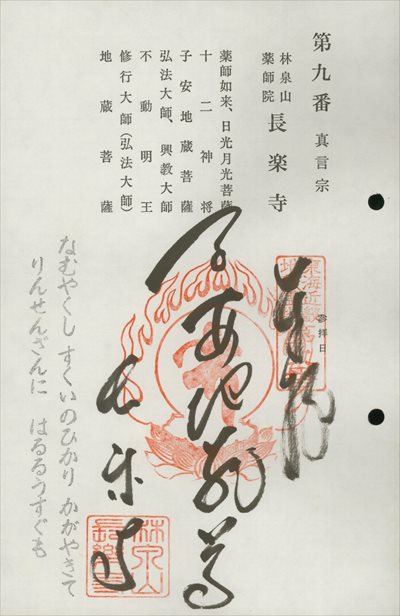 第九番 真言宗
林泉山
薬師院 長楽寺
薬師如来、日光月光菩薩
十二神将
子安地蔵菩薩
弘法大師、興教大師
不動明王
修行大師(弘法大師)
地蔵菩薩
参拝日
奉拝
子安地蔵尊
長楽寺
林泉山
長楽寺
なむやくし すくいのひかり かがやきて
りんせんざんに はるるうすぐも